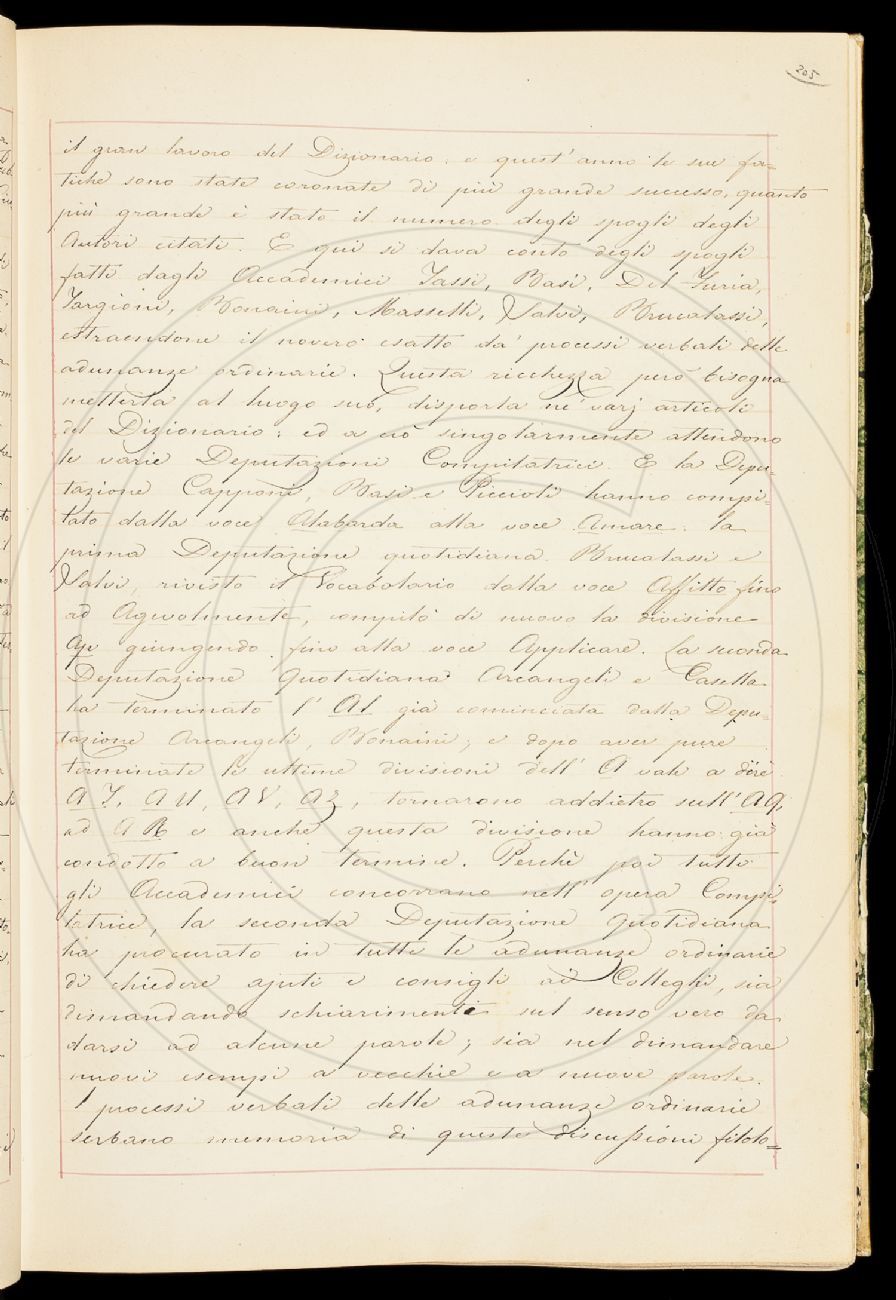 305
il gran lavoro del Dizionario: e quest'anno le sue fa=
tiche sono state coronate di più grande successo, quanto
più grande è stato il numero degli spogli degli
Autori citati. E qui si dava conto degli spogli
fatti dagli Accademici Tassi, Basi, Del Furia,
Targioni, Bonaini, Masselli, Salvi, Brucalassi,
estraendone il novero esatto da' processi verbali delle
adunanze ordinarie. Questa ricchezza però bisogna
metterla al luogo suo, disporla ne' varj articoli
del Dizionario; ed a ciò singolarmente attendono
le varie Deputazioni Compilatrici. E la Depu=
tazione Capponi, Basi e Piccioli hanno compi=
lato dalla voce Alabarda alla voce Amare. la
prima Deputazione quotidiana. Brucalassi e
Salvi, rivisto il Vocabolario dalla voce Affitto fino
ad Agevolmente, compilò di nuovo la divisione
Ap giungendo fino alla voce Applicare. La seconda
Deputazione quotidiana Arcangeli e Casella
ha terminato l'Al già cominciata dalla Depu=
tazione Arcangeli, Bonaini; e dopo aver pure
terminate le ultime divisioni dell'A vale a dire
AT, AU, AV, AZ, tornarono addietro sull'AQ,
ad AR e anche questa divisione hanno già
condotto a buon termine. Perchè poi tutti
gli Accademici concorrano nell'opera Compi=
latrice, la seconda Deputazione quotidiana
ha procurato in tutte le adunanze ordinarie
di chiedere ajuti e consigli ai Colleghi, sia
dimandando schiarimenti sul senso vero da
darsi ad alcune parole; sia nel dimandare
nuovi esempi a vecchie e a nuove parole.
I processi verbali delle adunanze ordinarie
serbano memoria di queste discussioni filolo=